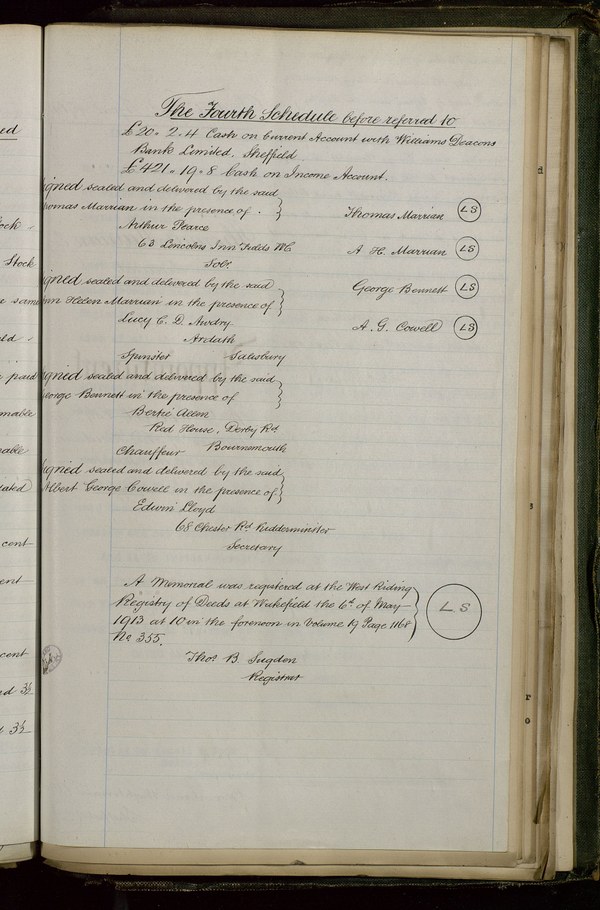 The Fourth Schedule before referred to
£20. 2. 4 Cash on Current Account with Williams Deacons
Bank Limited. Sheffield.
£421. 19. 8 Cash on Income Account.
igned sealed and delivered by the said
homas Marrian in the presence of . } Thomas Marrian LS
Arthur Pearce
63 Lincolns Inn Fields WC. A H. Marrian LS
Solr.
igned sealed and delivered by the said George Bennett LS
nn Helen Marrian in the presence of }
Lucy C. D. Awdry A. G. Cowell LS
Ardath
Spinster Salisbury
igned sealed and delivered by the said
eorge Bennett in the presence of }
Bertie
Red House, Derby Rd
Chauffeur Bournemouth
igned sealed and delivered by the said
Albert George Cowell in the presence of }
Edwin Lloyd
68 Chester Rd Kidderminster
Secretary
A Memorial was registered at the West Riding
Registry of Deeds at Wakefield the 6th of May
1913 at 10 in the forenoon in Volume 19 Page 1168 } LS
No 355.
Thos B. Sugden
Registrar
ed
ock
Stock
same
ld
paid
mable
able
iated
cent
ent
cent
d 3½
3½
d
s
r
o